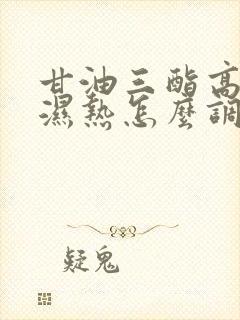 甘油三酯高
濕熱怎麼調
疑鬼